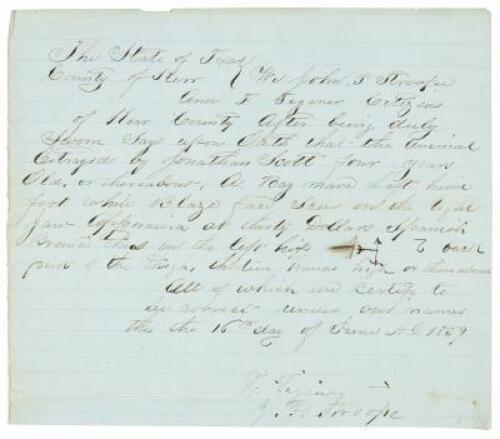 The State of Texas
County of Kerr { We John P Stroope
Ann F Tegener Citizens
of Kerr County After being duly
Sworn Says upon Oath that the animal
Estrayed by Jonathan Scott four years
Old, or thereabout, A Bay mare Left hind
foot white Blaze face Scar on the
jaw at thirty Dollars Spanish
Brand this on the left hip back
part of the thirteen hands high or thereabout
All of which we certify to
be correct under our names
this the 16th day of June A D 1859
F. Tegener
J. P. Stroope